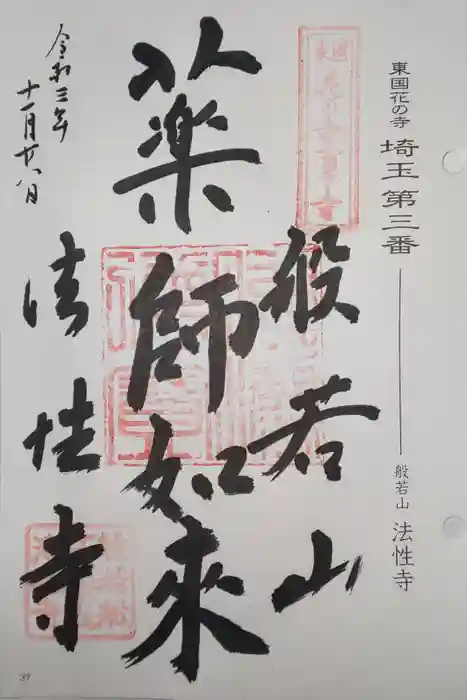 東国花の寺 埼玉 第三番
般若山 法性寺
般若山
薬師如来
令和三年
十一月廿八日
法性寺
37